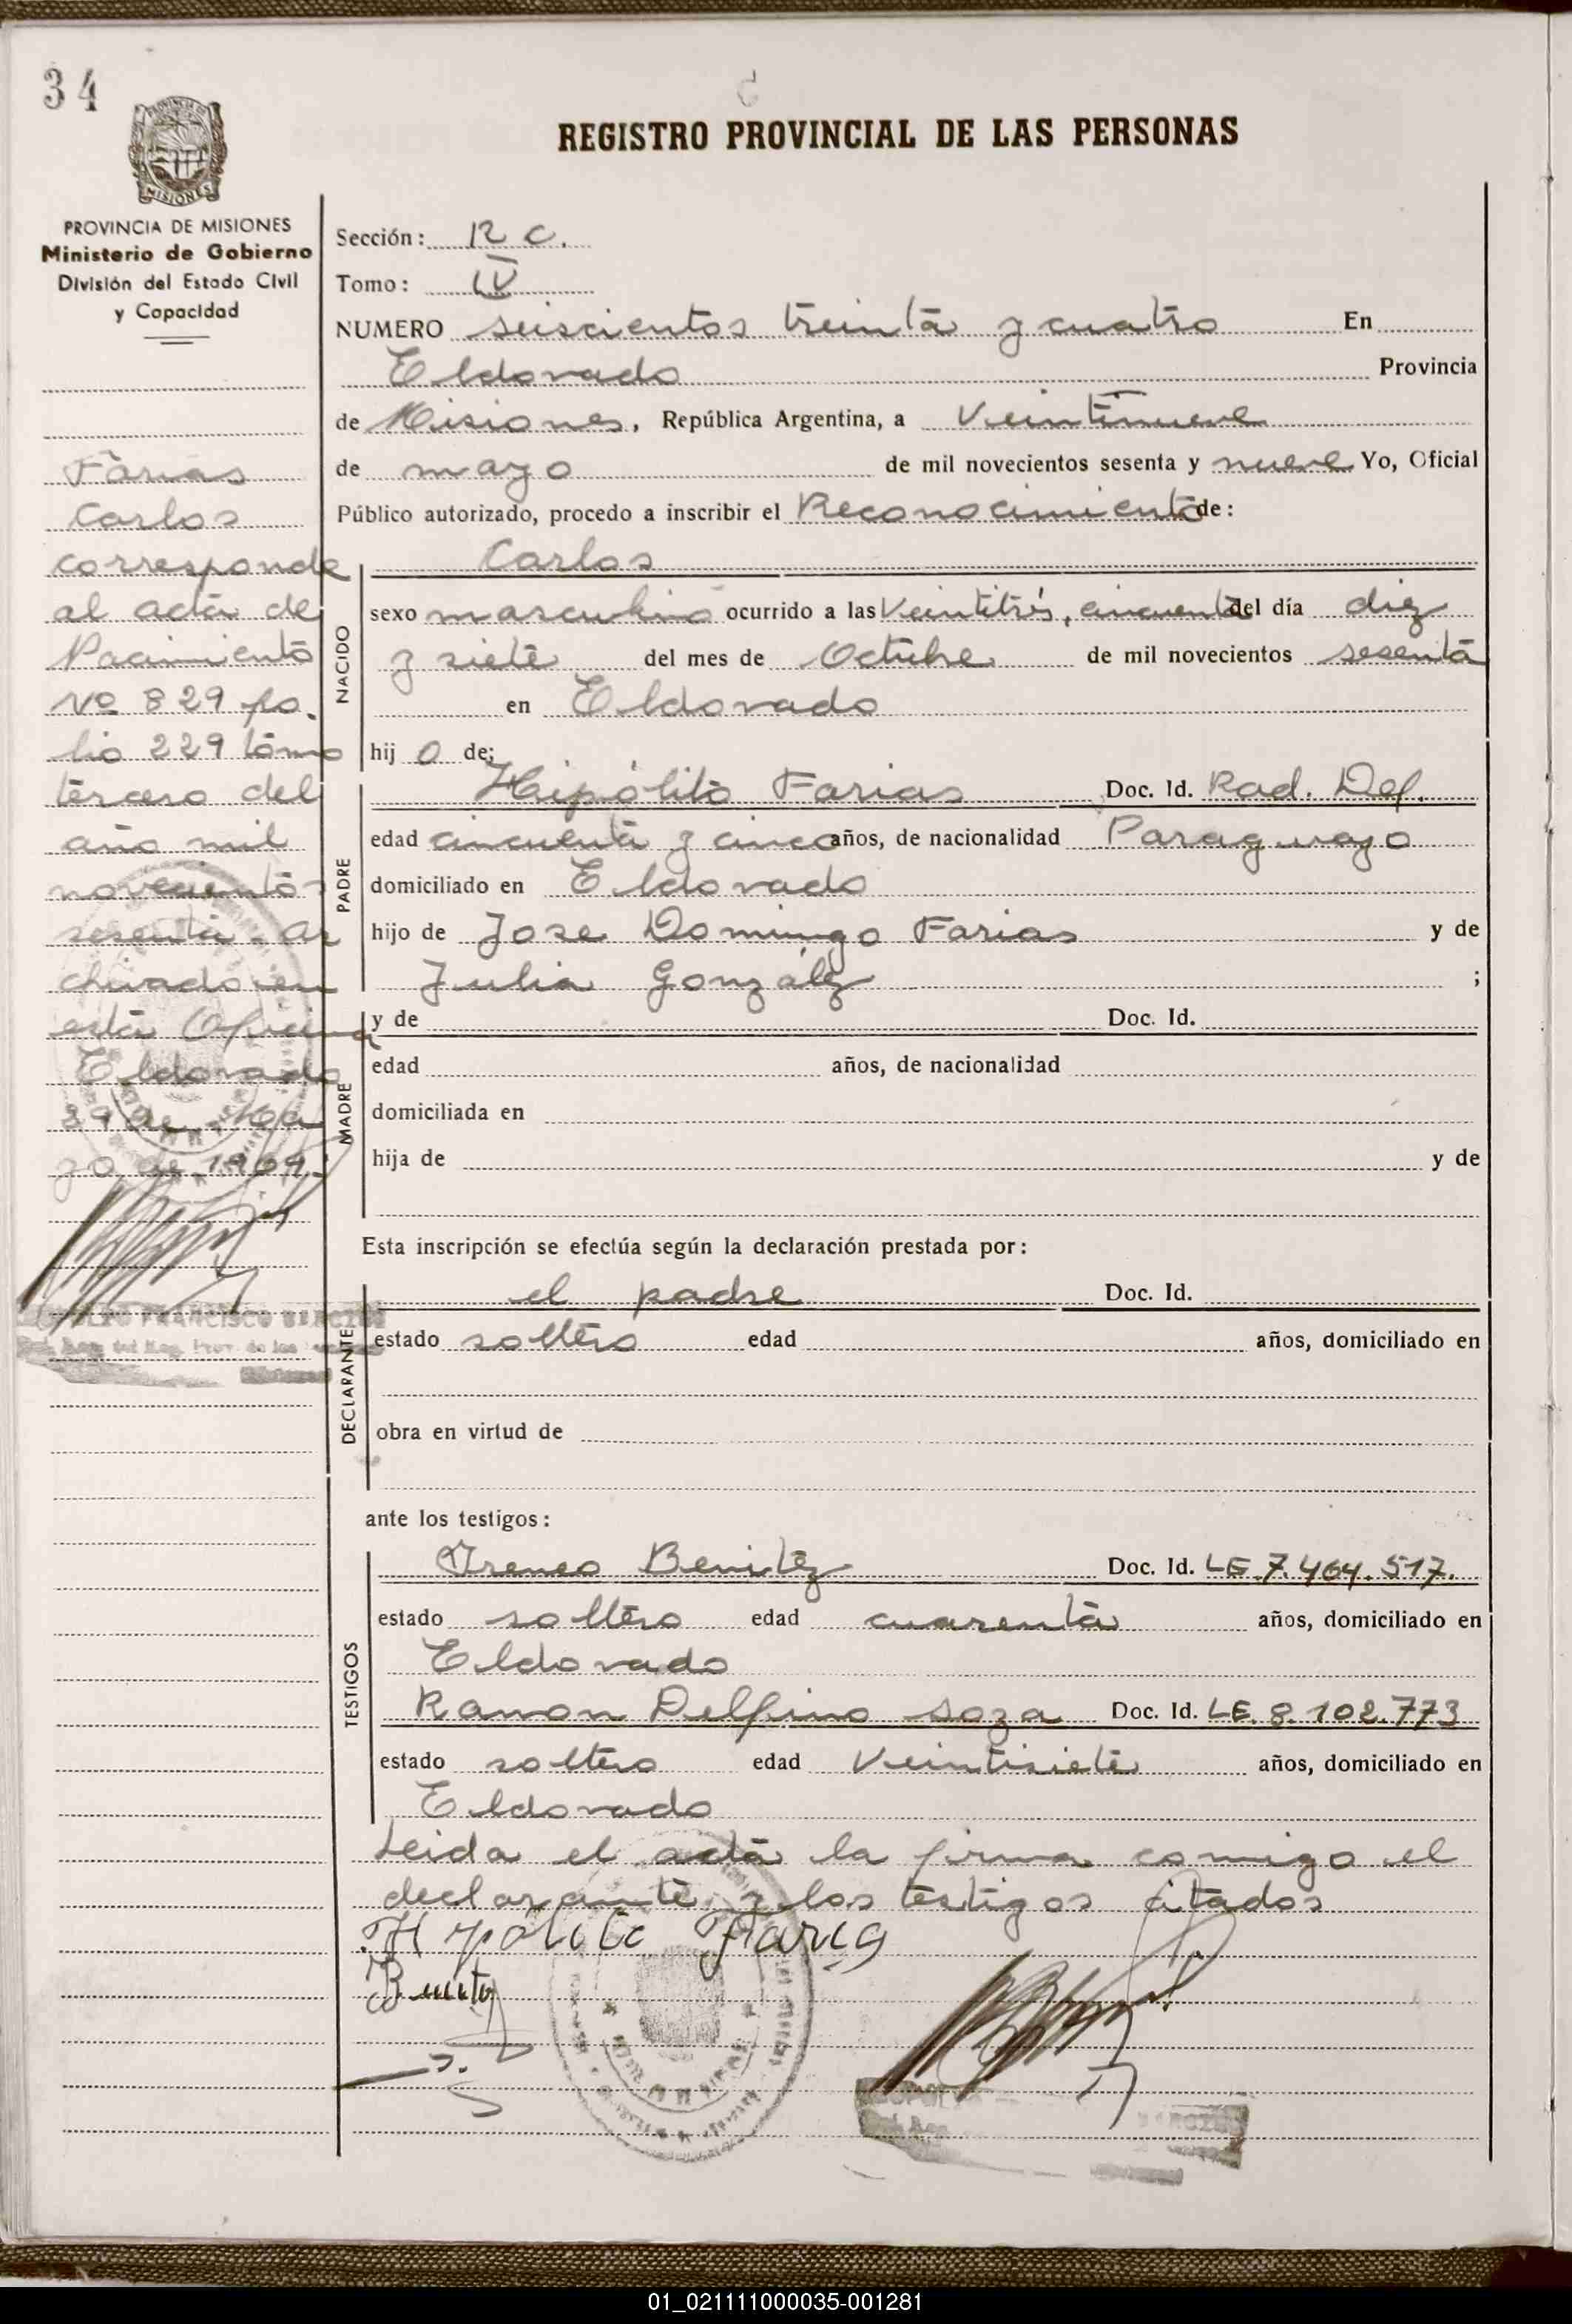 34
REGISTRO PROVINCIAL DE LAS PERSONAS
MISIONES
PROVINCIA DE MISIONES
Ministerio de Gobierno
División del Estado Civil
y Capacidad
Farias
Carlos
corresponde
al acta de
Nacimiento
Nº 829 fo.
lio 229 tomo
tercero del
año mil
novecientos
sesenta. ar
chivado en
esta Oficina
Eldorado
29 de Ma
yo de 1969.
Sección: R C.
Tomo: IV
NUMERO seiscientos treinta y cuatro En
Eldorado Provincia
de Misiones, República Argentina, a Veintinueve
de mayo de mil novecientos sesenta y nueve Yo, Oficial
Público autorizado, procedo a inscribir el Reconocimiento de:
NACIDO
Carlos
sexo masculino ocurrido a las Veintitrés, cincuenta del día diez
y siete del mes de Octubre de mil novecientos sesenta
en Eldorado
hij o de;
PADRE
Hipólito Farias Doc. Id. Rad. Def.
edad cincuenta y cinco años, de nacionalidad Paraguayo
domiciliado en Eldorado
hijo de Jose Domingo Farias y de
Julia González ;
MADRE
y de Doc. Id.
edad años, de nacionalidad
domiciliada en
hija de y de
Esta inscripción se efectúa según la declaración prestada por:
DECLARANTE
el padre Doc. Id.
estado soltero edad años, domiciliado en
obra en virtud de
ante los testigos:
TESTIGOS
Ireneo Benitez Doc. Id. LE 7.464.517.
estado soltero edad cuarenta años, domiciliado en
Eldorado
Ramon Delfino Soza Doc. Id. LE. 8.102.773
estado soltero edad Veintisiete años, domiciliado en
Eldorado
Leida el acta la firma comigo el
declarante y los testigos citados
Hipólito Farias
01_021111000035-001281